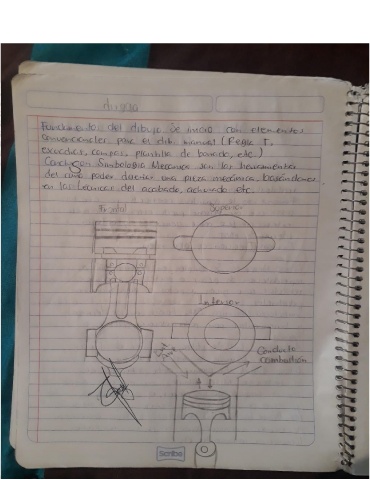 dibujo
Fundamentos del dibujo Se inicio con elementos
convencionales para el dibujo manual (Regla T,
escuadras, compas, plantilla de borrado, etc.)
Simbologia Mecanica son las herramientas
del como poder dibujar una pieza mecánica, basandonos
en las tecnicas del acabado, achurado etc.
Frontal Superior
Inferior
Conducto
combustion
Scribe